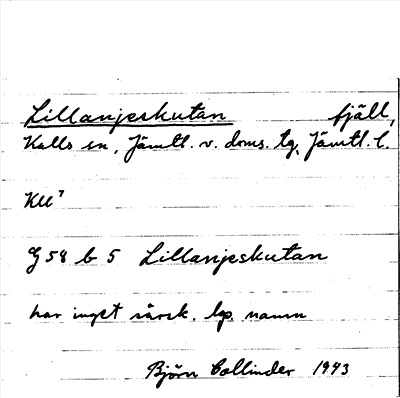 Lillanjeskutan fjäll,
Kalls sn, Jämtl. v. doms. tg, Jämtl. l.
KU⁷
G 58 b 5 Lillanjeskutan
har inget särsk. lp. namn
Björn Collinder 1943